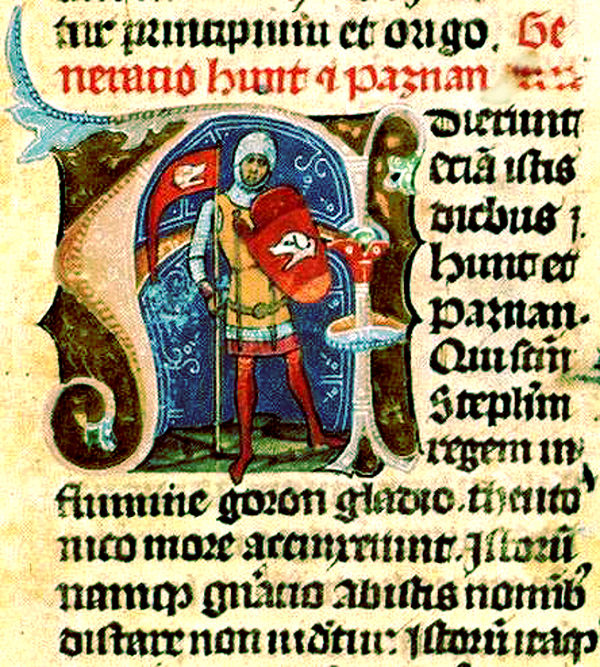 tur principium et origo. Ge
neratio hunt ⁊ paznan
Dierunt
eciā istis
diebus ⁊
hunt et
paznan.
Qui scm̄
Stephm̄
regem in
flumine goron gladio. theuto
nico more accinxerunt. Istorū
namqꝫ gn̄acio ab istis nomīb
distare non uidetur. Istorū itaqꝫ